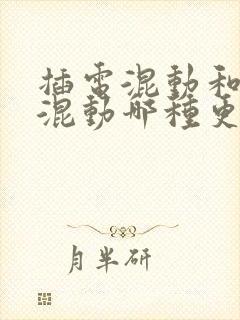 插電混動和
混動哪種更
月半研